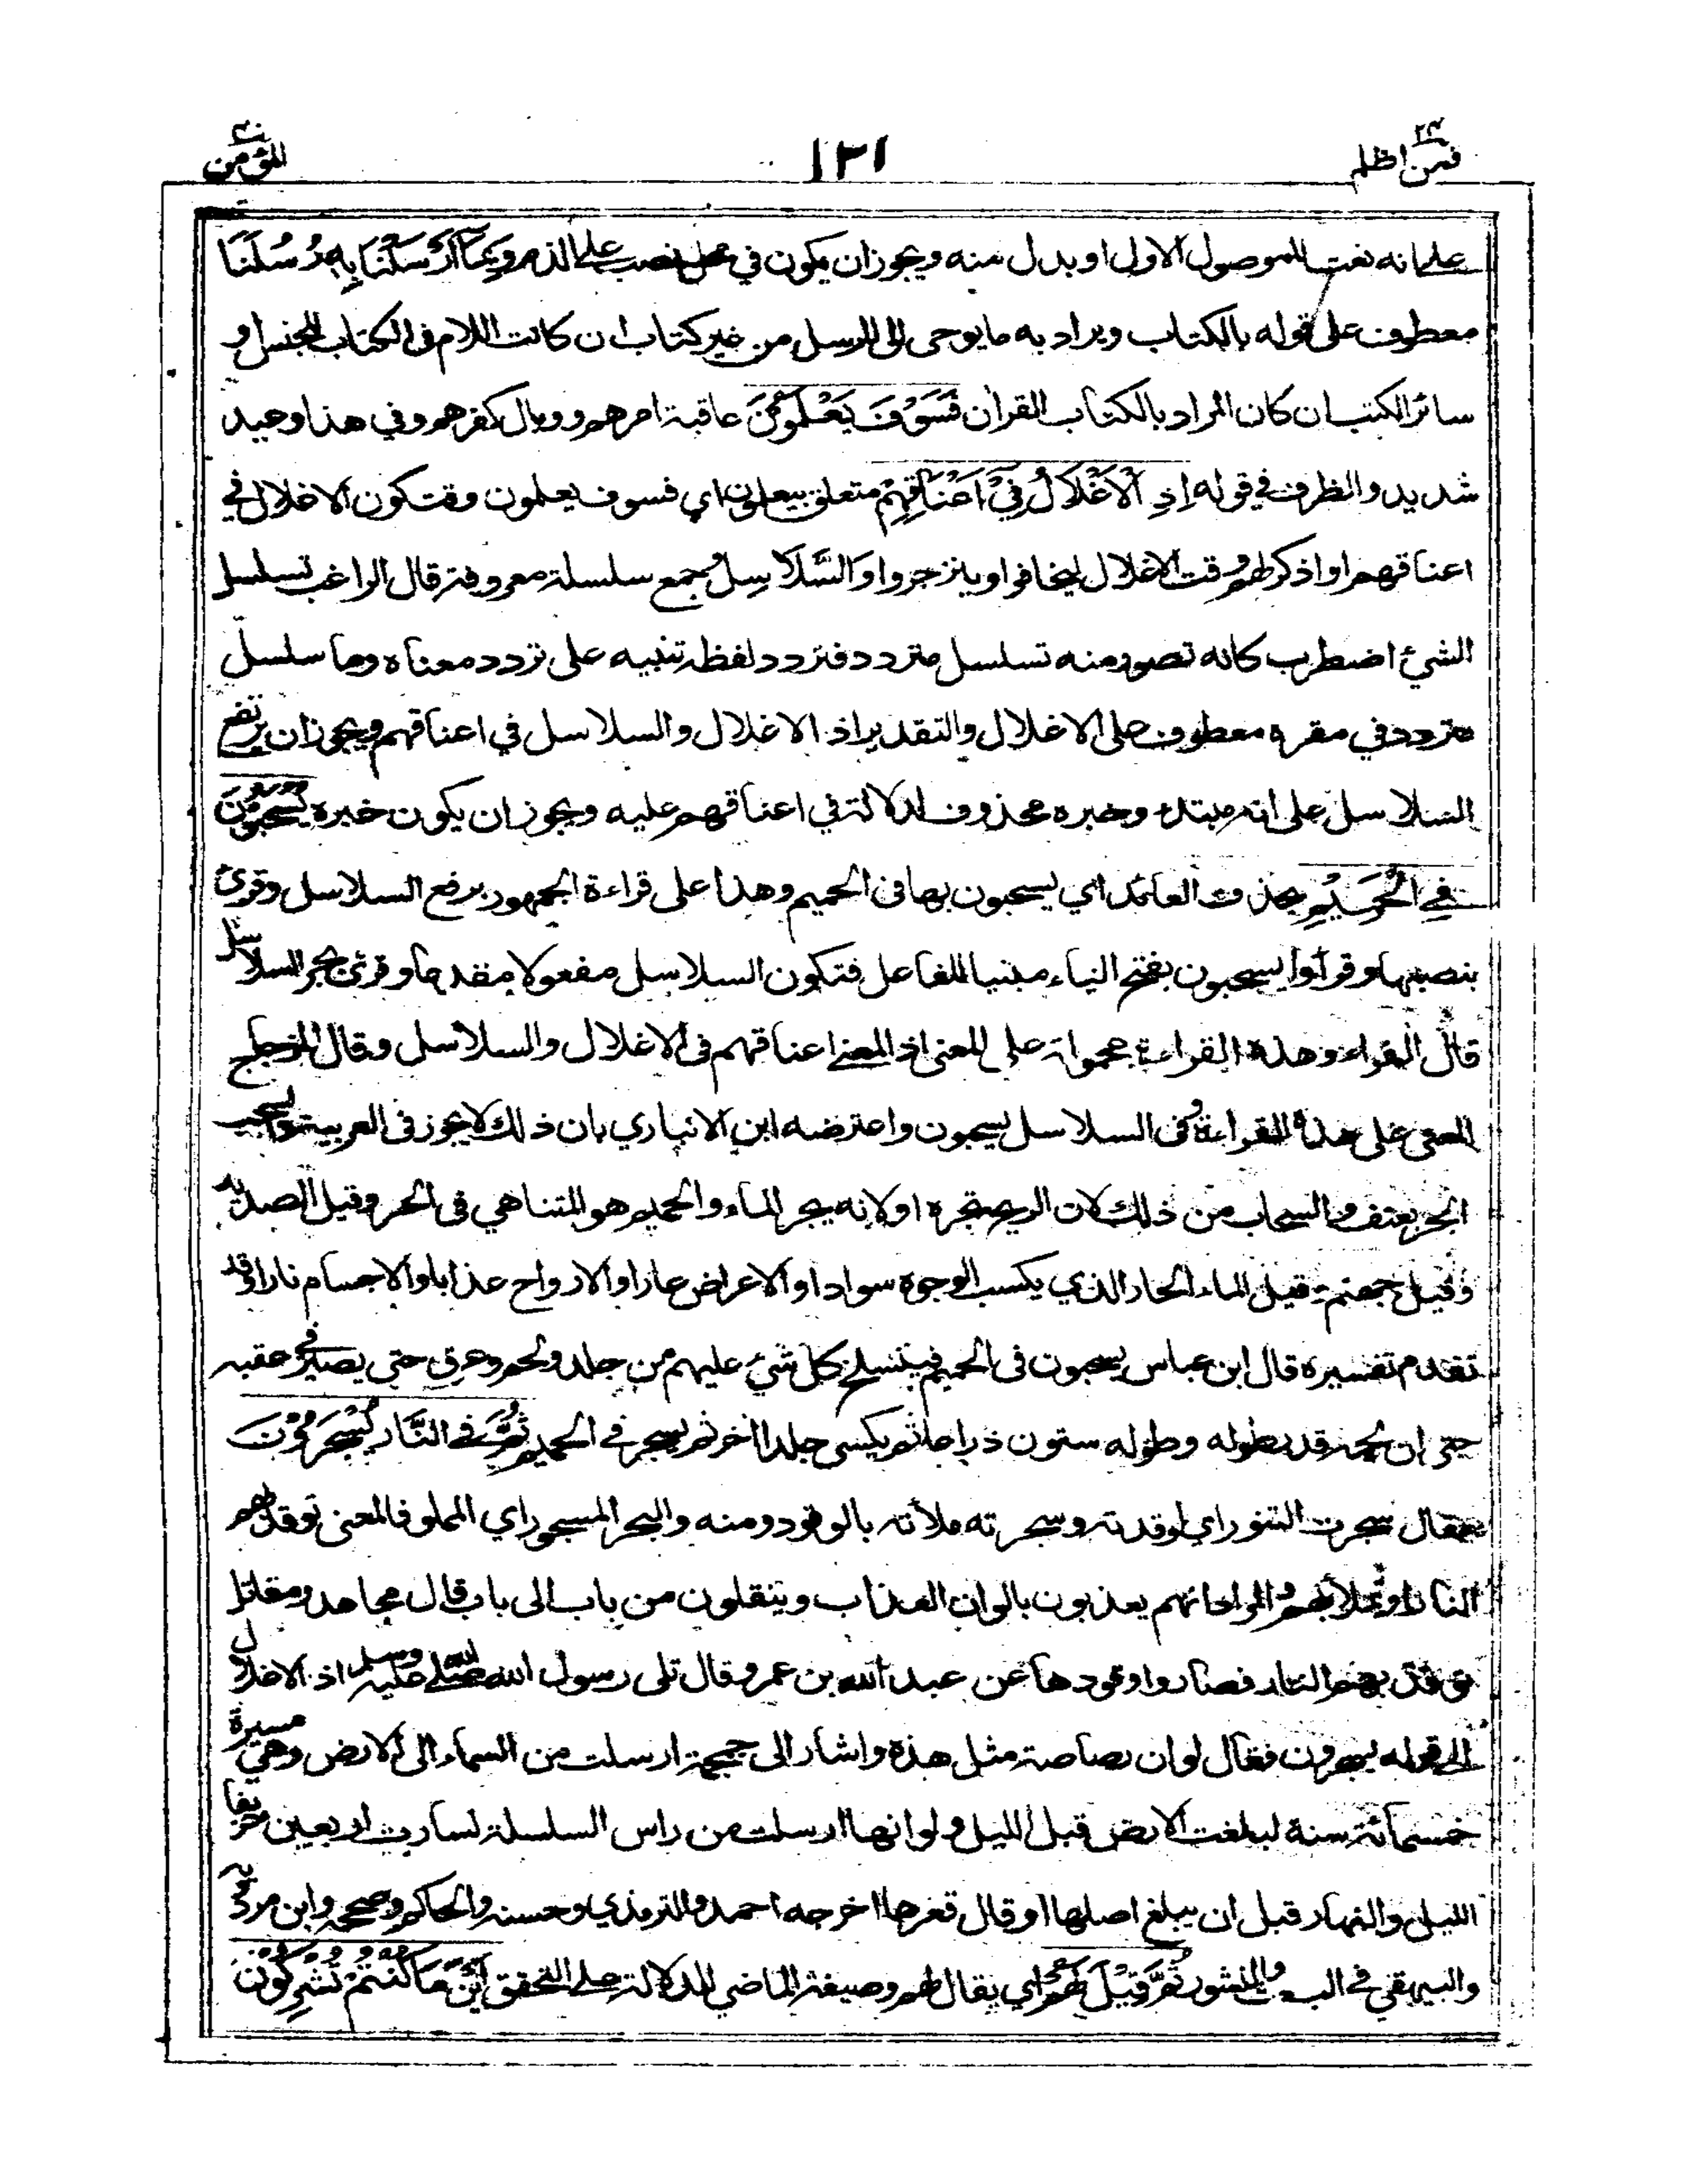 فمن اظلم ٢٤
١٣١
المؤمن ٤٠
على انه نعت للموصول الاول او بدل منه ويجوز ان يكون في محل نصب على الذم وَبِمَا أَرْسَلْنَا بِهِ رُسُلَنَا
معطوف على قوله بالكتاب ويراد به ما يوحى الى الرسل من غير كتاب ان كانت اللام فى الكتاب للجنس او
سائر الكتب ان كان المراد بالكتاب القران فَسَوْفَ يَعْلَمُوْنَ عاقبة امرهم ووبال كفرهم وفي هذا وعيد
شديد والظرف في قوله اِذِ الْاَغْلَالُ فِيْ اَعْنَاقِهِمْ متعلق بيعلمون اي فسوف يعلمون وقت كون الاغلال في
اعناقهم او اذكر لهم وقت الاغلال ليخافوا وينزجروا وَالسَّلَاسِلُ جمع سلسلة معروفة قال الراغب تسلسل
الشيء اضطرب كانه تصور منه تسلسل متردد فتردد لفظه تنبيه على تردد معناه وماء سلسل
متردد في مقره معطوف على الاغلال والتقدير اذ الاغلال والسلاسل في اعناقهم ويجوز ان يرتفع
السلاسل على انه مبتدء وخبره محذوف لدلالة في اعناقهم عليه ويجوز ان يكون خبره يُسْحَبُوْنَ
فِي الْحَمِيْمِ بحذف العائد اي يسحبون بها فى الحميم وهذا على قراءة الجمهور برفع السلاسل وقرئ
بنصبها وقرأوا يسحبون بفتح الياء مبنيا للفاعل فتكون السلاسل مفعولا مقدما وقرئ بجر السلاسل
قال الفراء وهذه القراءة محمولة على المعنى اذ المعنى اعناقهم فى الاغلال والسلاسل وقال الزجاج
المعنى على هذه القراءة وفى السلاسل يسحبون واعترضه ابن الانباري بان ذلك لا يجوز فى العربية والسحب
الجر بعنف والسحاب من ذلك لان الريح تجره او لانه يجر الماء والحميم هو المتناهي فى الحر وقيل الصديد
وقيل جهنم وقيل الماء الحار الذي يكسب الوجوه سوادا والاعراض عارا والارواح عذابا والاجسام نارا وقد
تقدم تفسيره قال ابن عباس يسحبون فى الحميم فينسلخ كل شيء عليهم من جلد ولحم وعرق حتى يصير في عقبه
حتى ان لحمه قدر طوله وطوله ستون ذراعا ثم يكسى جلدا اخر ثم يسجر في الحميم ثُمَّ فِي النَّارِ يُسْجَرُوْنَ
يقال سجرت التنور اي اوقدته وسجرته ملأته بالوقود ومنه والبحر المسجور اي المملو فالمعنى توقد بهم
النار او تملأ بهم والمراد انهم يعذبون بالوان العذاب وينقلون من باب الى باب قال مجاهد ومقاتل
توقد بهم النار فصاروا وقودها عن عبد الله بن عمرو قال تلى رسول الله صلى الله عليه وسلم اذ الاغلال
الى قوله يسجرون فقال لو ان رصاصة مثل هذه واشار الى جمجمة ارسلت من السماء الى الارض وهي مسيرة
خمسمائة سنة لبلغت الارض قبل الليل ولو انها ارسلت من راس السلسلة لسارت اربعين خريفا
الليل والنهار قبل ان يبلغ اصلها او قال قعرها اخرجه احمد والترمذي وحسنه والحاكم وصححه وابن مردويه
والبيهقي في البعث والنشور ثُمَّ قِيْلَ لَهُمْ اي يقال لهم وصيغة الماضي للدلالة على التحقق اَيْنَ مَا كُنْتُمْ تُشْرِكُوْنَ